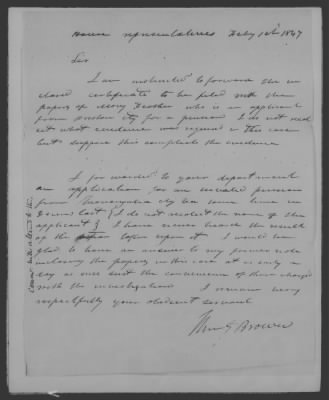 House representatives Feby 1st 1847
Sir
I am instructed to forward the in
closed certificate to be filed with the
papers of Mary Feather who is an applicant
from Preston cty for a pension I do not recol
lect what evidence was required in this case
but I suppose this completes the evidence
I forwarded to your department
an application for an invalid pension
from Monongalia cty Va some time in
last I do not recollect the name of the
applicant I have never heard the result
of the taken upon it I would be
glad to have an answer to my former note
inclosing the papers in this case at as early a
day as will suit the convenience of those charged
with the investigation I remain very
respectfully your obedient servant
Wm G Brown